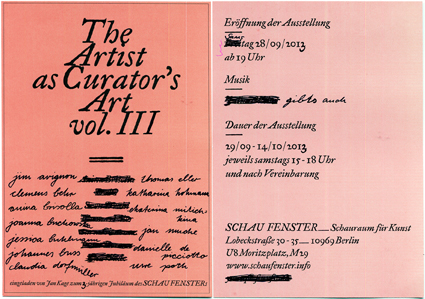 The
Artist
as Curator's
Art
vol. III
jim avignon thomas eller
clemens behr katharina
anina brisolla ekaterina mitich
joanna buchowska
jessica buhlmann jan muche
johannes buss danielle de
picciotto
claudia uwe poth
eingeladen von Jan Kage zum 3 jährigen Jubiläum des SCHAU FENSTERs
Eröffnung der Ausstellung
tag 28/09/2013
ab 19 Uhr
Musik
gibts auch
Dauer der Ausstellung
29/09 - 14/10/2013
jeweils samstags 15 - 18 Uhr
und nach Vereinbarung
SCHAU FENSTER__Schauraum für Kunst
Lobeckstraße 30 - 35__ 10969 Berlin
U8 Moritzplatz, M29
www.schaufenster.info